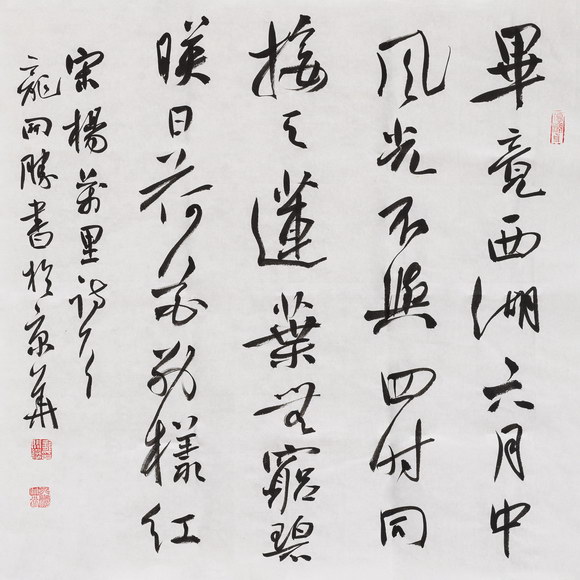 畢竟西湖六月中
风光不與四时同
接天蓮葉無窮碧
暎日荷花别樣红
宋楊萬里詩
龍開勝書於京華